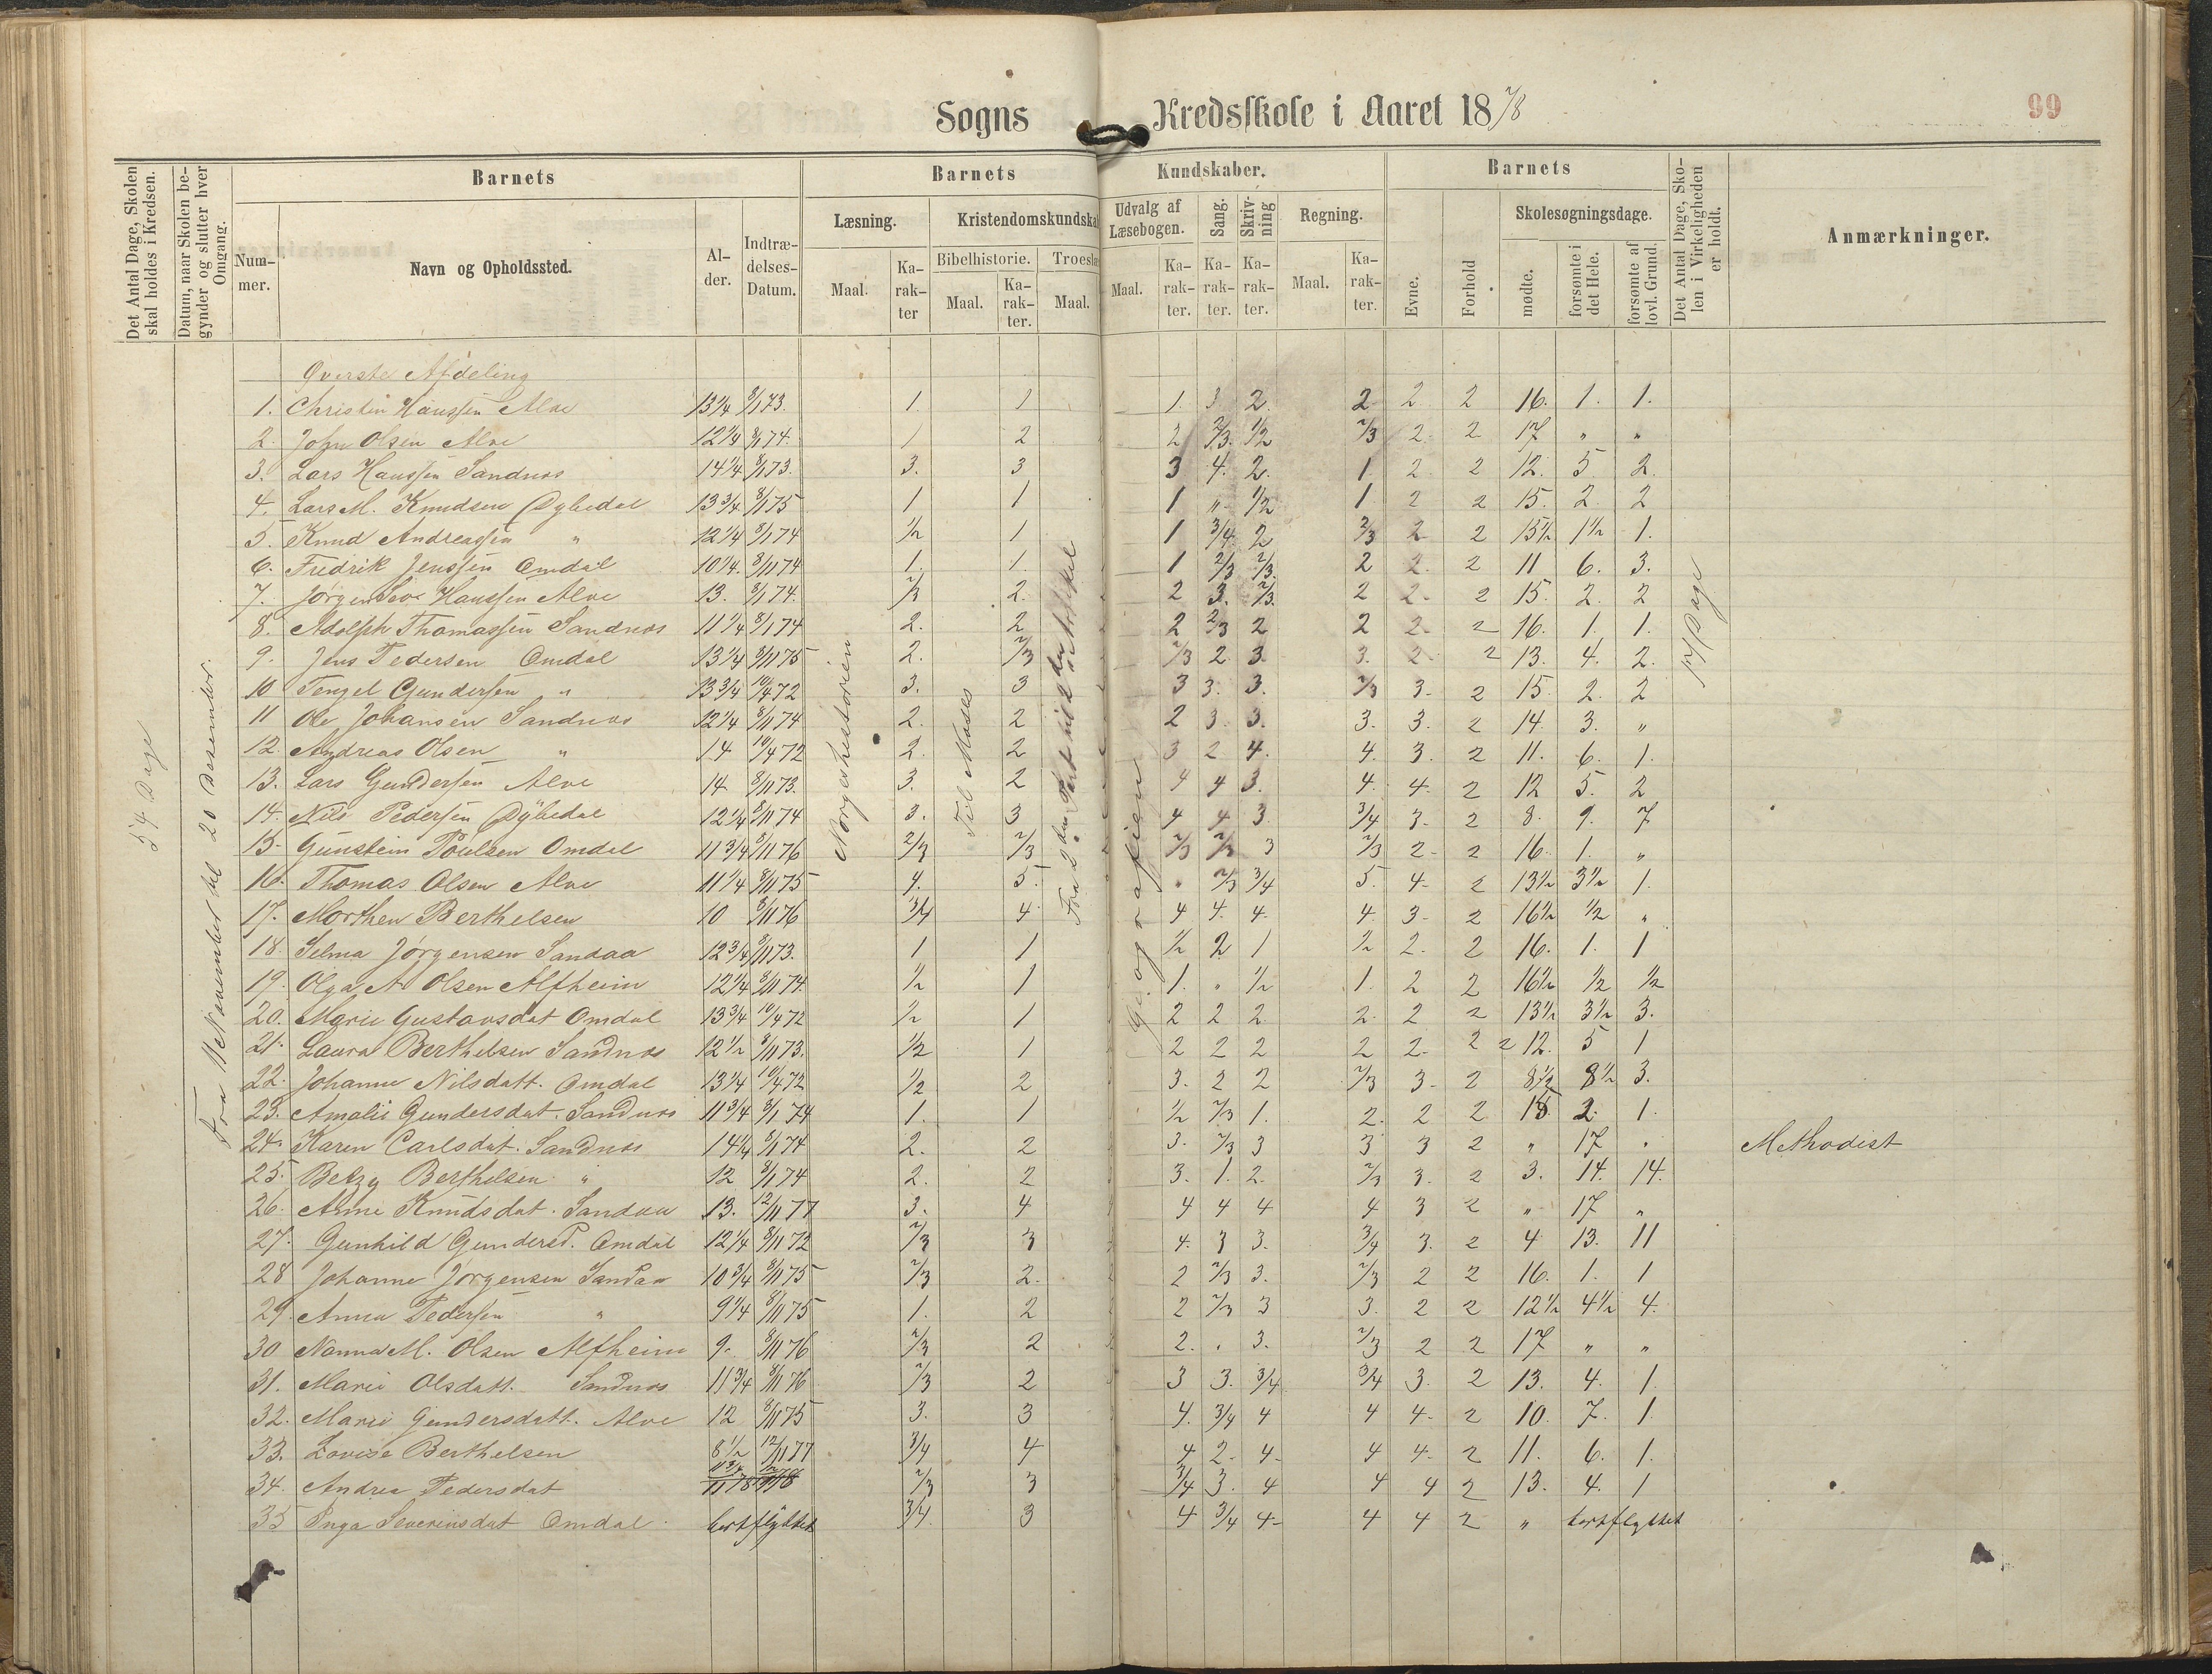 Sogns Kredsskole i Aaret 1878
99
Det Antal Dage, Skolen skal holdes i Kredsen.
Datum, naar Skolen begynder og slutter hver Omgang.
Barnets
Nummer.
Navn og Opholdssted.
Alder.
Indtrædelses-Datum.
Barnets Kundskaber.
Læsning.
Maal. Karakter
Kristendomskundskab
Bibelhistorie. Troeslæ
Maal. Karakter. Maal.
Udvalg af Læsebogen.
Maal. Karakter.
Sang. Karakter.
Skrivning Karakter.
Regning.
Maal. Karakter.
Barnets
Evne.
Forhold
Skolesøgningsdage.
mødte.
forsømte i det Hele.
forsømte af lovl. Grund.
Det Antal Dage, Skolen i Virkeligheden er holdt.
Anmærkninger.
54 Dage
Norgeshistorien
Til Moses
Geografien
17 Dage
Øverste Afdeling
1. Christen Hanssen Alve 13 1/4 8/1 73. 1. 1 1. 3 2. 2 2 2 16. 1. 1.
2. John Olsen Alve 12 1/4 8/1 74. 1 2 2 2/3. 1/2 2/3 2. 2 17 " "
3. Lars Hanssen Sandnes 14 1/4 8/1 73. 3. 3 3 4. 2. 1 2 2 12. 5 2.
4. Lars M. Knudsen Dybedal 13 3/4 8/1 75 1 1 1 " 1/2 1 2 2 15. 2. 2
5. Knud Andreassen " 12 1/4 8/1 74 1/2 1 1 3/4 2 2/3 2 2 15 1/2 1 1/2 1.
6. Fredrik Jenssen Omdal 10 1/4. 8/11 74 1. 1. 1 2/3 2/3. 2 2. 2 11 6. 3.
7. Jørgen Hanssen Alve 13. 8/1 74. 2/3 2. 2 3. 2/3. 2 2. 2 15. 2. 2
8. Adolph Thomassen Sandnes 11 1/4 8/1 74 2. 2 2 2/3 2 2 2. 2 16. 1. 1.
9. Jens Pedersen Omdal 13 1/4 8/11 75 2. 2/3 2/3 2 3. 3. 2. 2 13. 4. 2.
10 Tengel Gundersen " 13 3/4 10/4 72 3. 3 3 3. 3. 2/3 3. 2 15. 2. 2
11 Ole Johansen Sandnes 12 1/4 8/11 74 2. 2 2 3. 3. 3. 3. 2 14. 3. "
12. Andreas Olsen " 14 10/4 72 2. 2 3 2 4. 4. 3. 2 11. 6. 1.
13. Lars Gundersen Alve 14 8/11 73. 3. 2 4 4 3. 4. 4. 2 12 5. 2
14. Nils Pedersen Dybedal 12 1/4 8/11 74 3. 3 4 4 3 3/4 3. 2 8. 9. 7
15. Gunstein Poulsen Omdal 11 3/4 8/11 76 2/3 2/3 2/3 2/3 3 2/3 2. 2 16. 1. "
16. Thomas Olsen Alve 11 1/4 8/11 75 4. 5. " 2/3 3/4 5. 4. 2 13 1/2 3 1/2 1.
17. Morthen Berthelsen 10 8/11 76 3/4 4 4 4. 4. 4. 3. 2 16 1/2 1/2 "
18. Selma Jørgensen Sandaa 12 3/4 8/11 73. 1 1 1/2 2 1 1/2 2. 2 16. 1. 1
19. Olga A Olsen Alfheim 12 1/4 8/11 74. 1/2 1 1. " 1/2 1. 2 2 16 1/2 1/2 1/2
20. Marie Gustavsdat Omdal 13 3/4 10/4 72 1/2 1 2 2 2. 2. 2 2 13 1/2 3 1/2 3.
21. Laura Berthelsen Sandnes 12 1/2 8/11 73. 1/2 1 2 2 2 2 2. 2 12. 5 1
22. Johanne Nilsdatt. Omdal 13 1/4 10/4 72 1/2 2 3. 2 2 2/3 3. 2 8 1/2 8 1/2 3.
23. Amalie Gundersdat. Sandnes 11 3/4 8/1 74 1. 1 1/2 2/3 1. 2. 2 2 15 2. 1.
24. Karen Carlsdat. Sandnes 14 1/4 8/1 74 2. 2 3. 2/3 3 3 3 2 " 17 " Methodist
25. Betzy Berthelsen " 12 8/1 74 2. 2 3. 1. 2. 2/3 3. 2 3. 14. 14.
26. Anne Knudsdat. Sandaa 13. 12/11 77 3. 4 4 4 4 4 3 2 " 17 "
27. Gunhild Gundersd. Omdal 12 1/4 8/11 72 2/3 3 4. 3 3. 3/4 3. 2 4 13. 11
28 Johanne Jørgensen Sandaa 10 3/4 8/11 75 2/3 2. 2 2/3 3. 2/3 2 2 16. 1. 1
29. Anna Pedersen " 9 1/4 8/11 75 1. 2 2 2/3 3 3. 2 2 12 1/2 4 1/2 4.
30 Nanna M. Olsen Alfheim 9. 8/11 76 2/3 2 2. " 3. 2/3 2 2 17 " "
31. Marie Olsdatt. Sandnes 11 3/4 8/11 76 2/3 2 3 3. 3/4 3/4 3. 2 13. 4. 1.
32. Marie Gundersdatt. Alve 12 8/11 75 3. 3 4. 3/4 4 4 4. 2 10. 7. 1.
33. Lovise Berthelsen 8 1/2 12/11 77 3/4 4 4 2. 4. 4 4. 2 11. 6. 1.
34. Andrea Pedersdat 2/3 3 3/4 3. 4 4 4 2 13. 4. 1
35 Inga Severinsdat Omdal bortflyttet 3/4. 3 4 3/4 4. 4 4 2 " bortflyttet